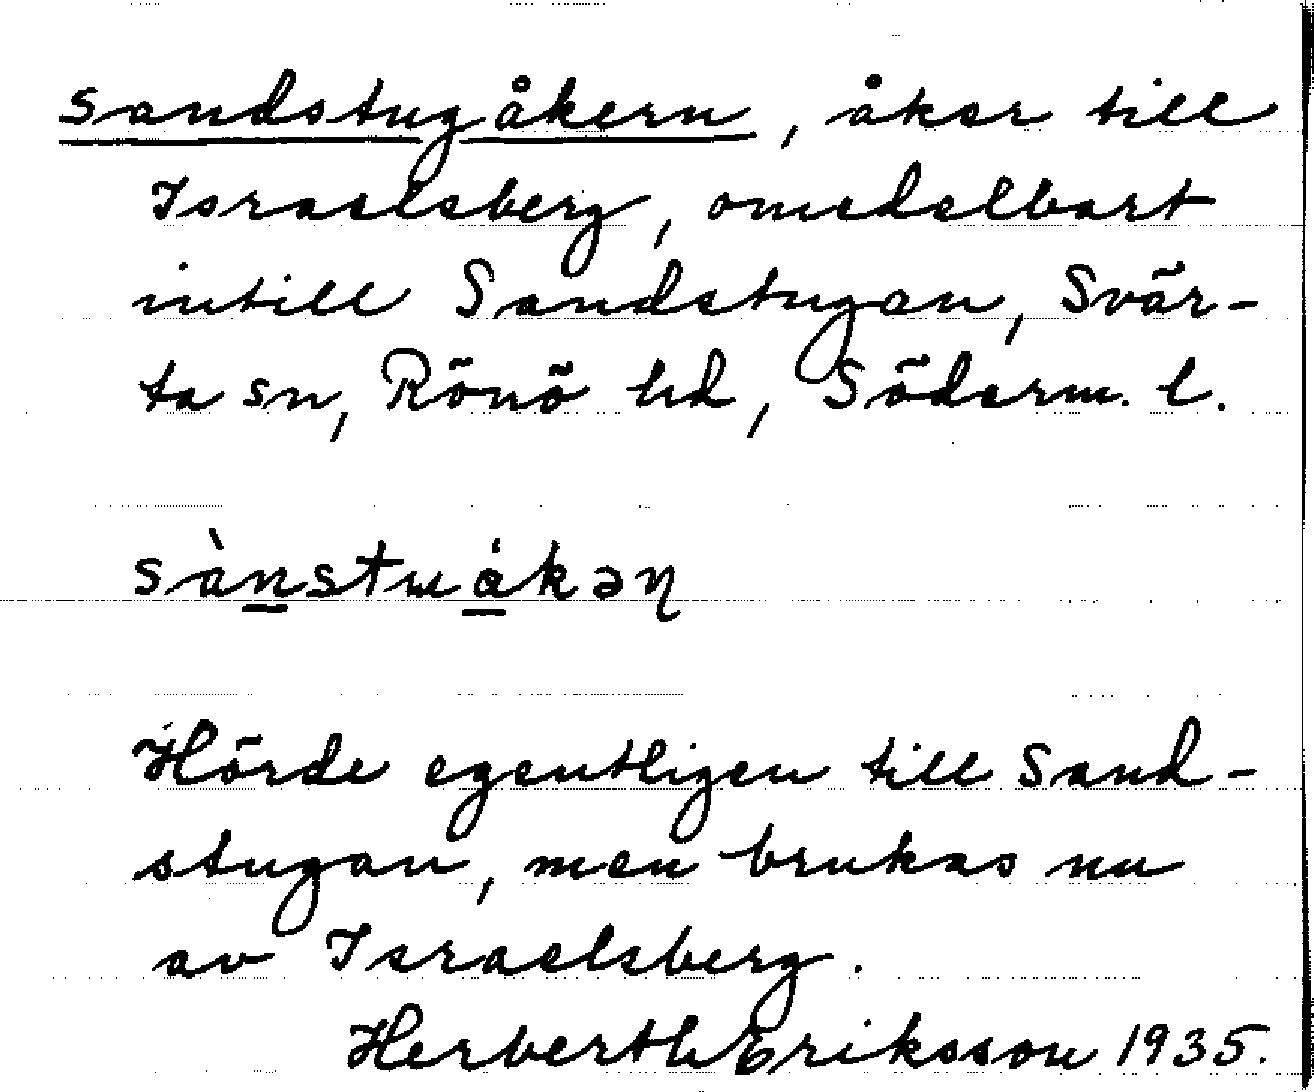 Sandstugåkern, åker till
Israelsberg, omedelbart
intill Sandstugan, Svär-
ta sn, Rönö hd, Söderm. l.
sànstuɯákəɳ
Hörde egentligen till Sand-
stugan, men brukas nu
av Israelsberg.
Herberth Eriksson 1935.